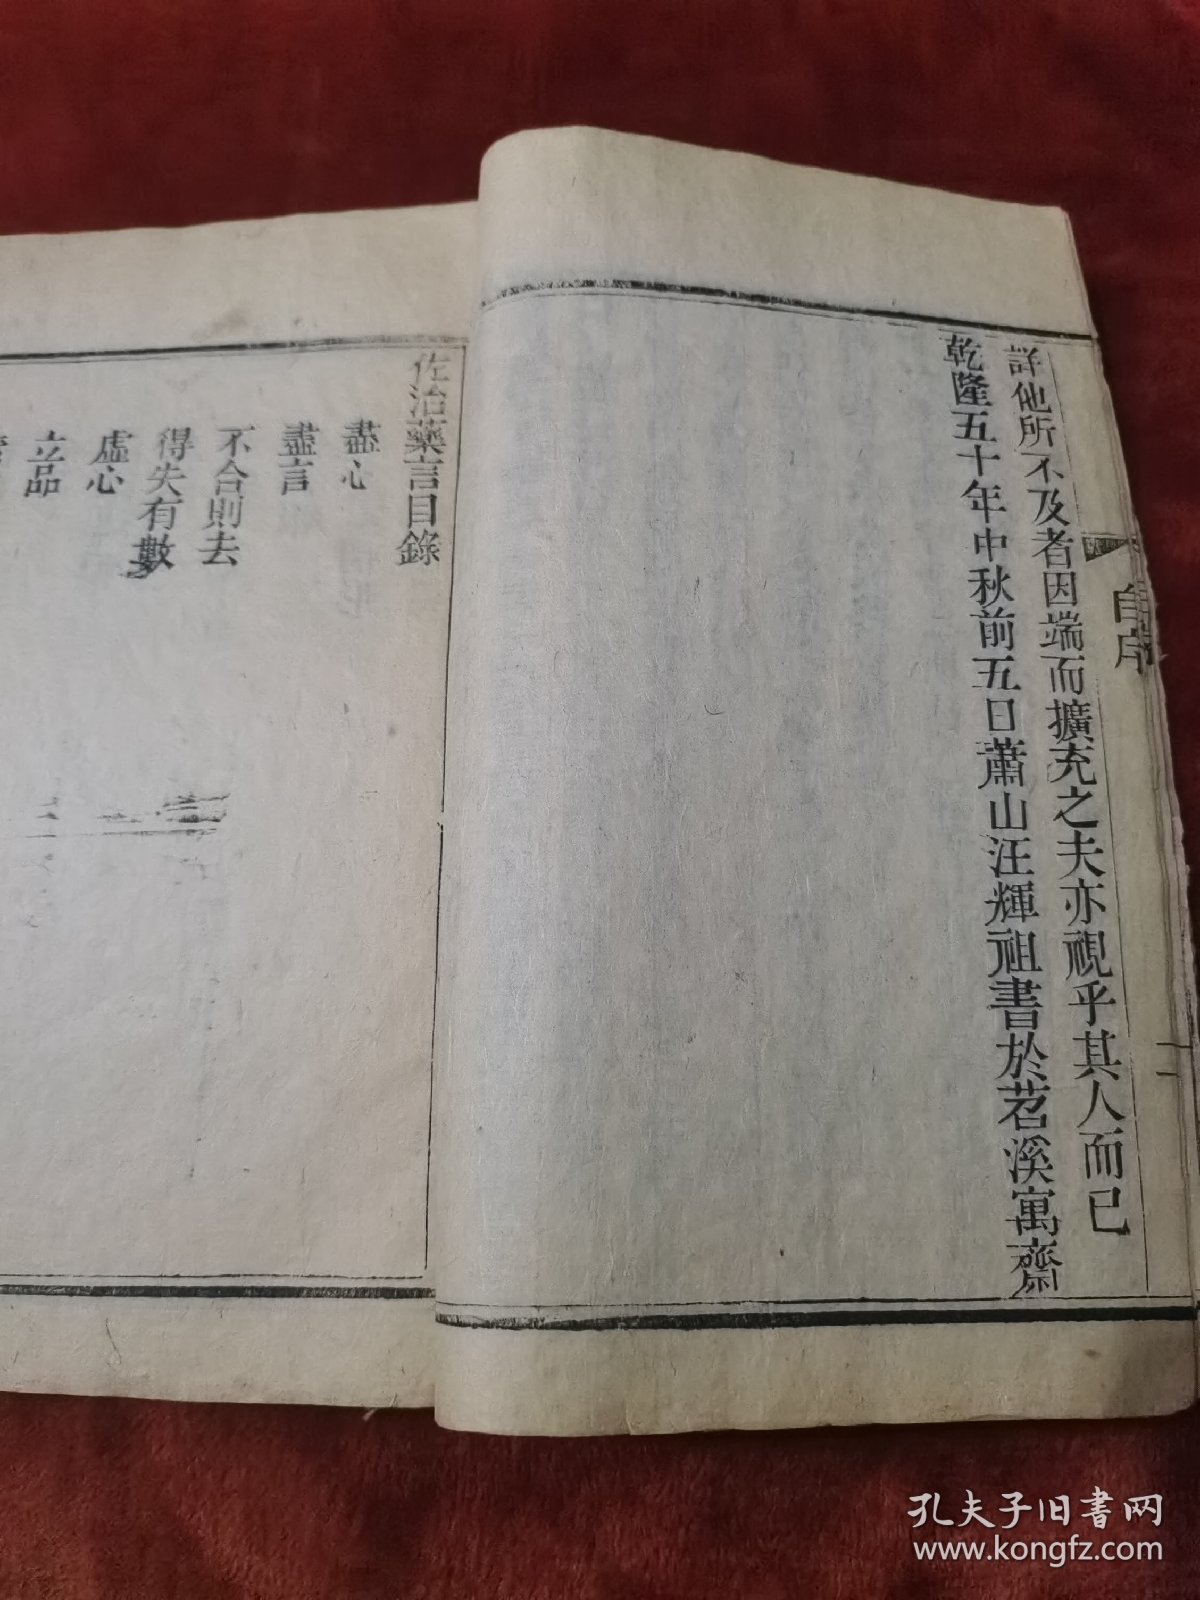 自序
詳他所不及者因端而擴充之夫亦視乎其人而已
乾隆五十年中秋前五日蕭山汪輝祖書於苕溪寓齋
二
佐治藥言目錄
盡心
盡言
不合則去
得失有數
虛心
立品
孔夫子旧书网
www.kongfz.com